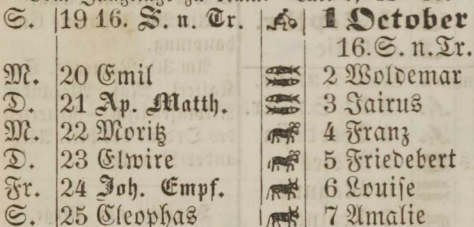 S. 19 16. S. n. Tr. 1 October
16. S. n. Tr.
M. 20 Emil 2 Woldemar
D. 21 Ap. Matth. 3 Jairus
M. 22 Moritz 4 Franz
D. 23 Elwire 5 Friedebert
Fr. 24 Joh. Empf. 6 Louise
S. 25 Cleophas 7 Amalie